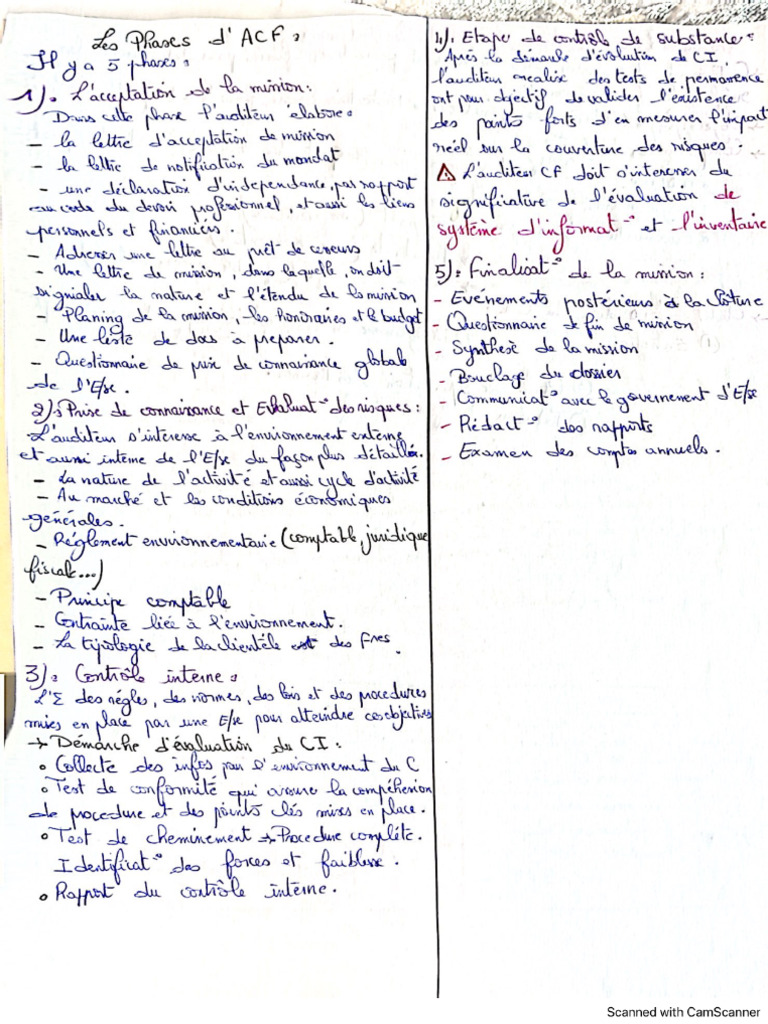 Les Phases d'ACF :
Il y a 5 phases :
1). L'acceptation de la mission :
Dans cette phase l'auditeur elabore :
- la lettre d'acceptation de mission
- la lettre de notification du mandat
- une déclaration d'independance, par rapport
au code du devoir professionnel, et aussi les liens
personnels et financiers.
- Adresser une lettre au
- Une lettre de mission, dans laquelle, on doit
signaler la nature et l'étendu de la mission
- Planing de la mission, les honoraires et le budget
- Une liste de docs à preparer.
- Questionnaire de prise de connaissance globale
de l'E/se.
2) : Prise de connaissance et Evaluat° des risques :
L'auditeur s'interesse à l'environnement externe
et aussi interne de l'E/se du façon plus détaillée.
- La nature de l'activité et aussi cycle d'activité
- Au marché et les conditions économiques
générales.
- Réglement environnementaire (comptable, juridique
fiscale...)
- Principe comptable
- Contrainte liée à l'environnement.
- La tipologie de la clientéle et des Fres.
3) : Contrôle interne :
L'Σ des régles, des normes, des lois et des procedures
mises en place par une E/se pour atteindre ces objectives
→ Démarche d'évaluation du CI :
° Collecte des infos par l'environnement du C
° Test de conformité qui assure la compéhension
de procedure et des points clés mises en place.
° Test de cheminement → Procedure compléte.
Identificat° des forces et faiblesse.
° Rapport du contrôle interne.
4). Etape de contrôle de substance :
Aprés la démarche d'évalution de CI,
l'auditeur realise des tests de permanence
ont pour objectif de valider l'existence
des points forts d'en mesurer l'impact
réel sur la couverture des risques.
⚠ L'auditeur CF doit s'interesser du
significative de l'évaluation de
système d'informat° et l'inventaire
5) : Finalisat° de la mission :
- Evénements postérieurs à la clôture
- Questionnaire de fin de mission
- Synthesè de la mission
- Bouclage du dossier
- Communicat° avec le governement d'E/se
- Rédact° des rapports
- Examen des comptes annuels.
Scanned with CamScanner